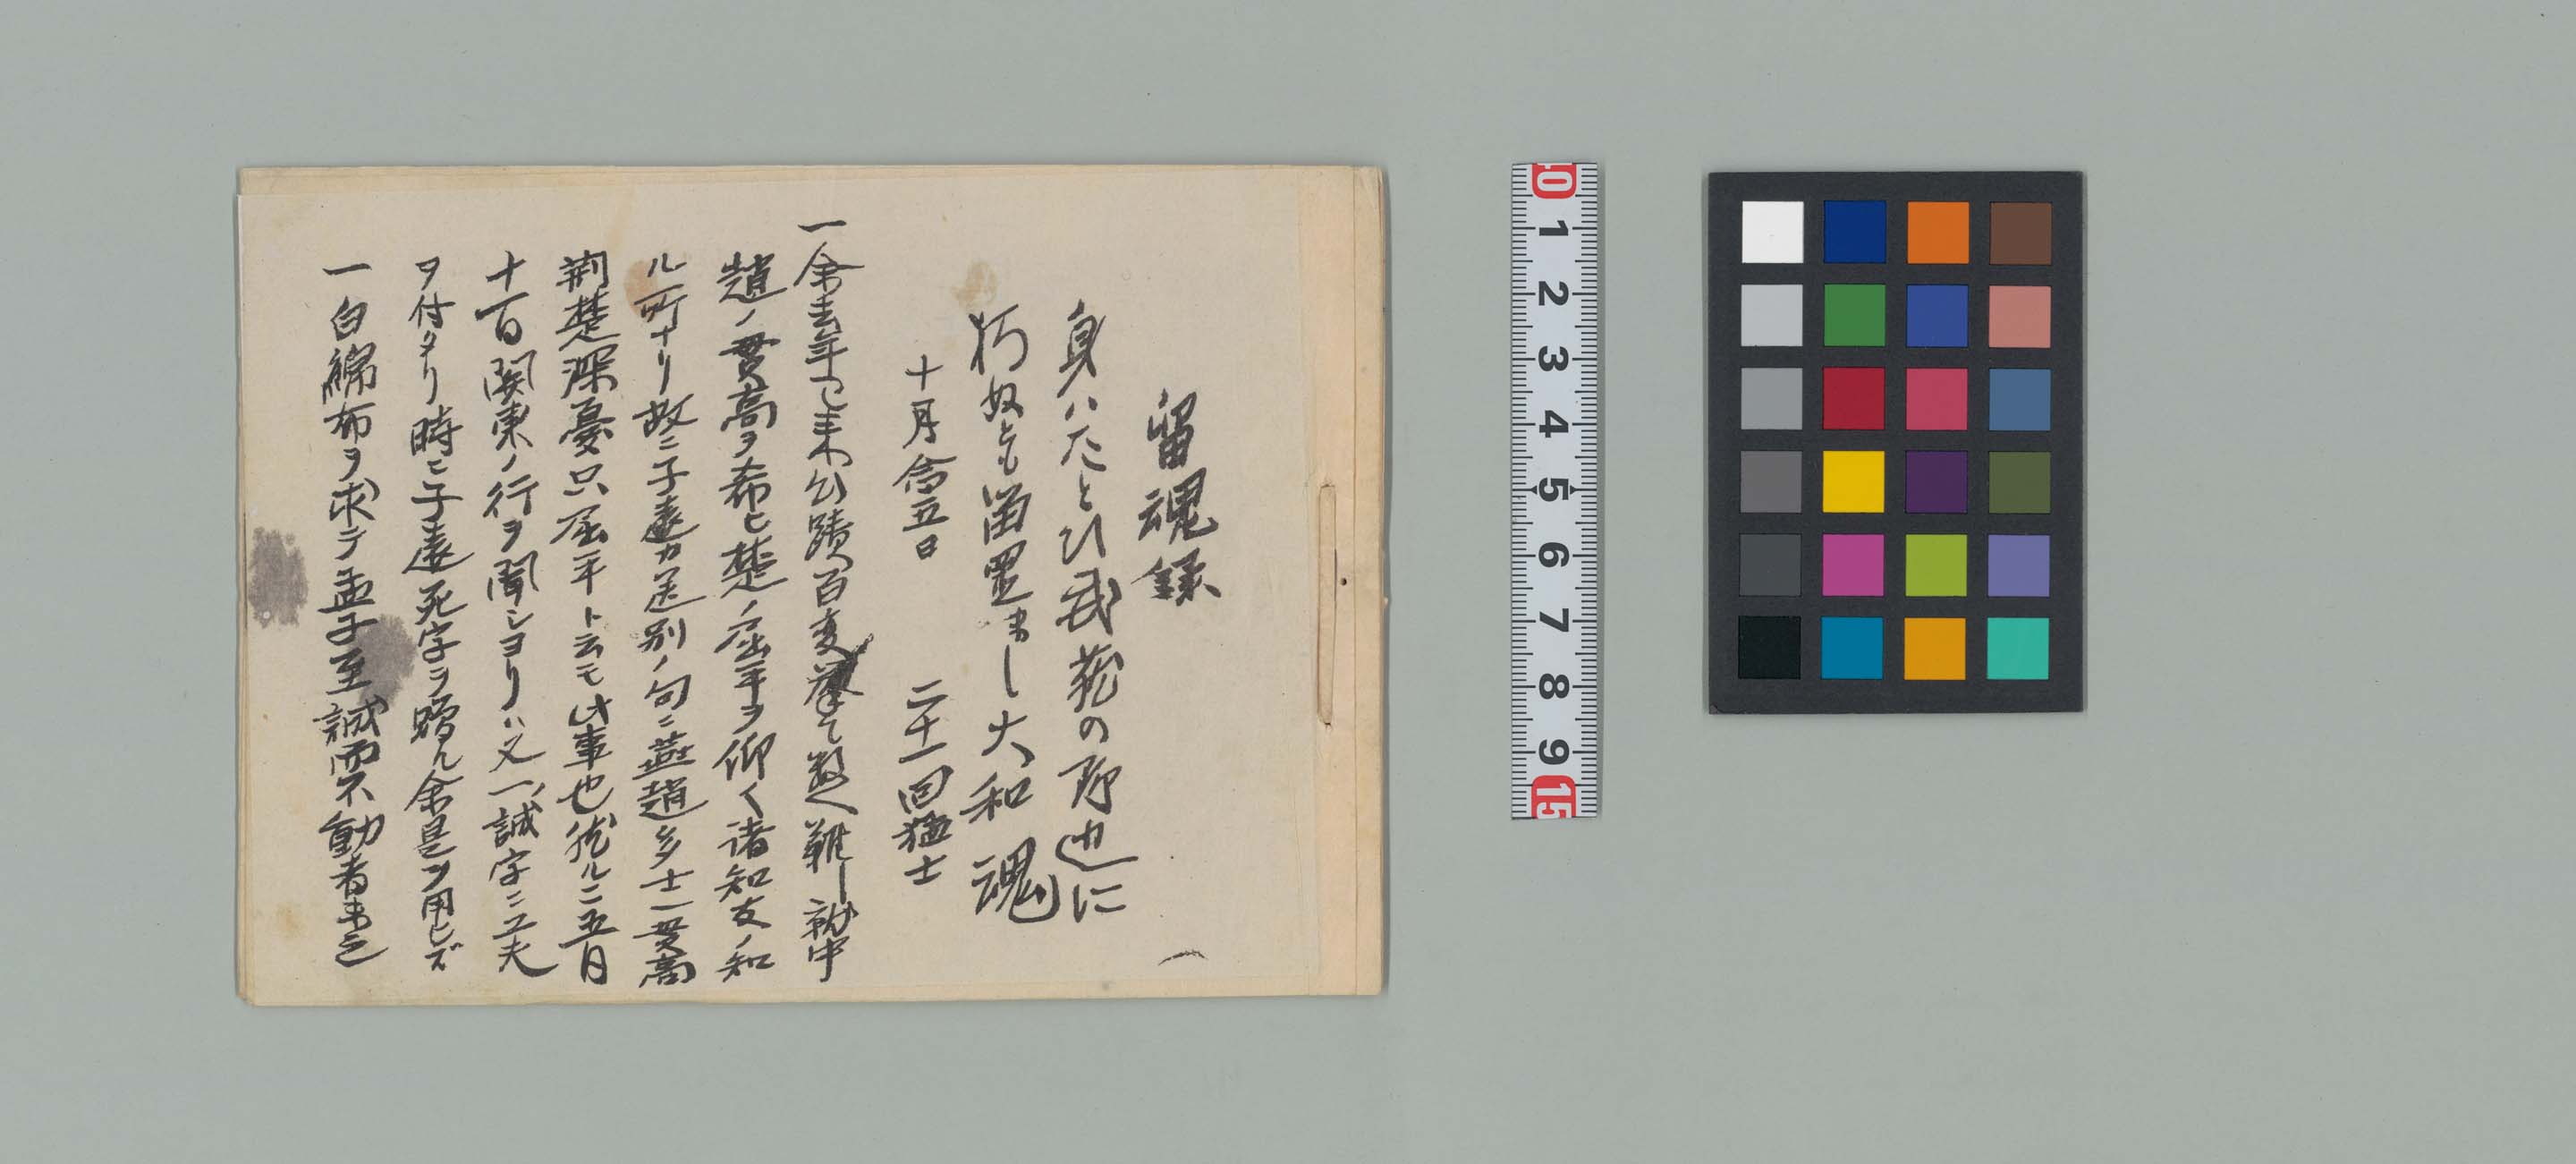 留魂録
身ハたとひ武蔵の野辺に
朽ぬとも留置まし大和魂
十月念五日 二十一回猛士
一余去年已来心蹟百変挙て数へ難し就中
趙ノ貫高ヲ希ヒ楚ノ屈平ヲ仰ク諸知友ノ知
ル所ナリ故ニ子遠カ送別ノ句ニ燕趙多士一貫高
荆楚深憂只屈平ト云モ此事也然ルニ五月
十一日関東ノ行ヲ聞シヨリハ又一ノ誠字ニ工夫
ヲ付タリ時ニ子遠死字ヲ贈ル余是ヲ用ヒズ
一白綿布ヲ求テ孟子至誠而不動者未之
0 1 2 3 4 5 6 7 8 9 15